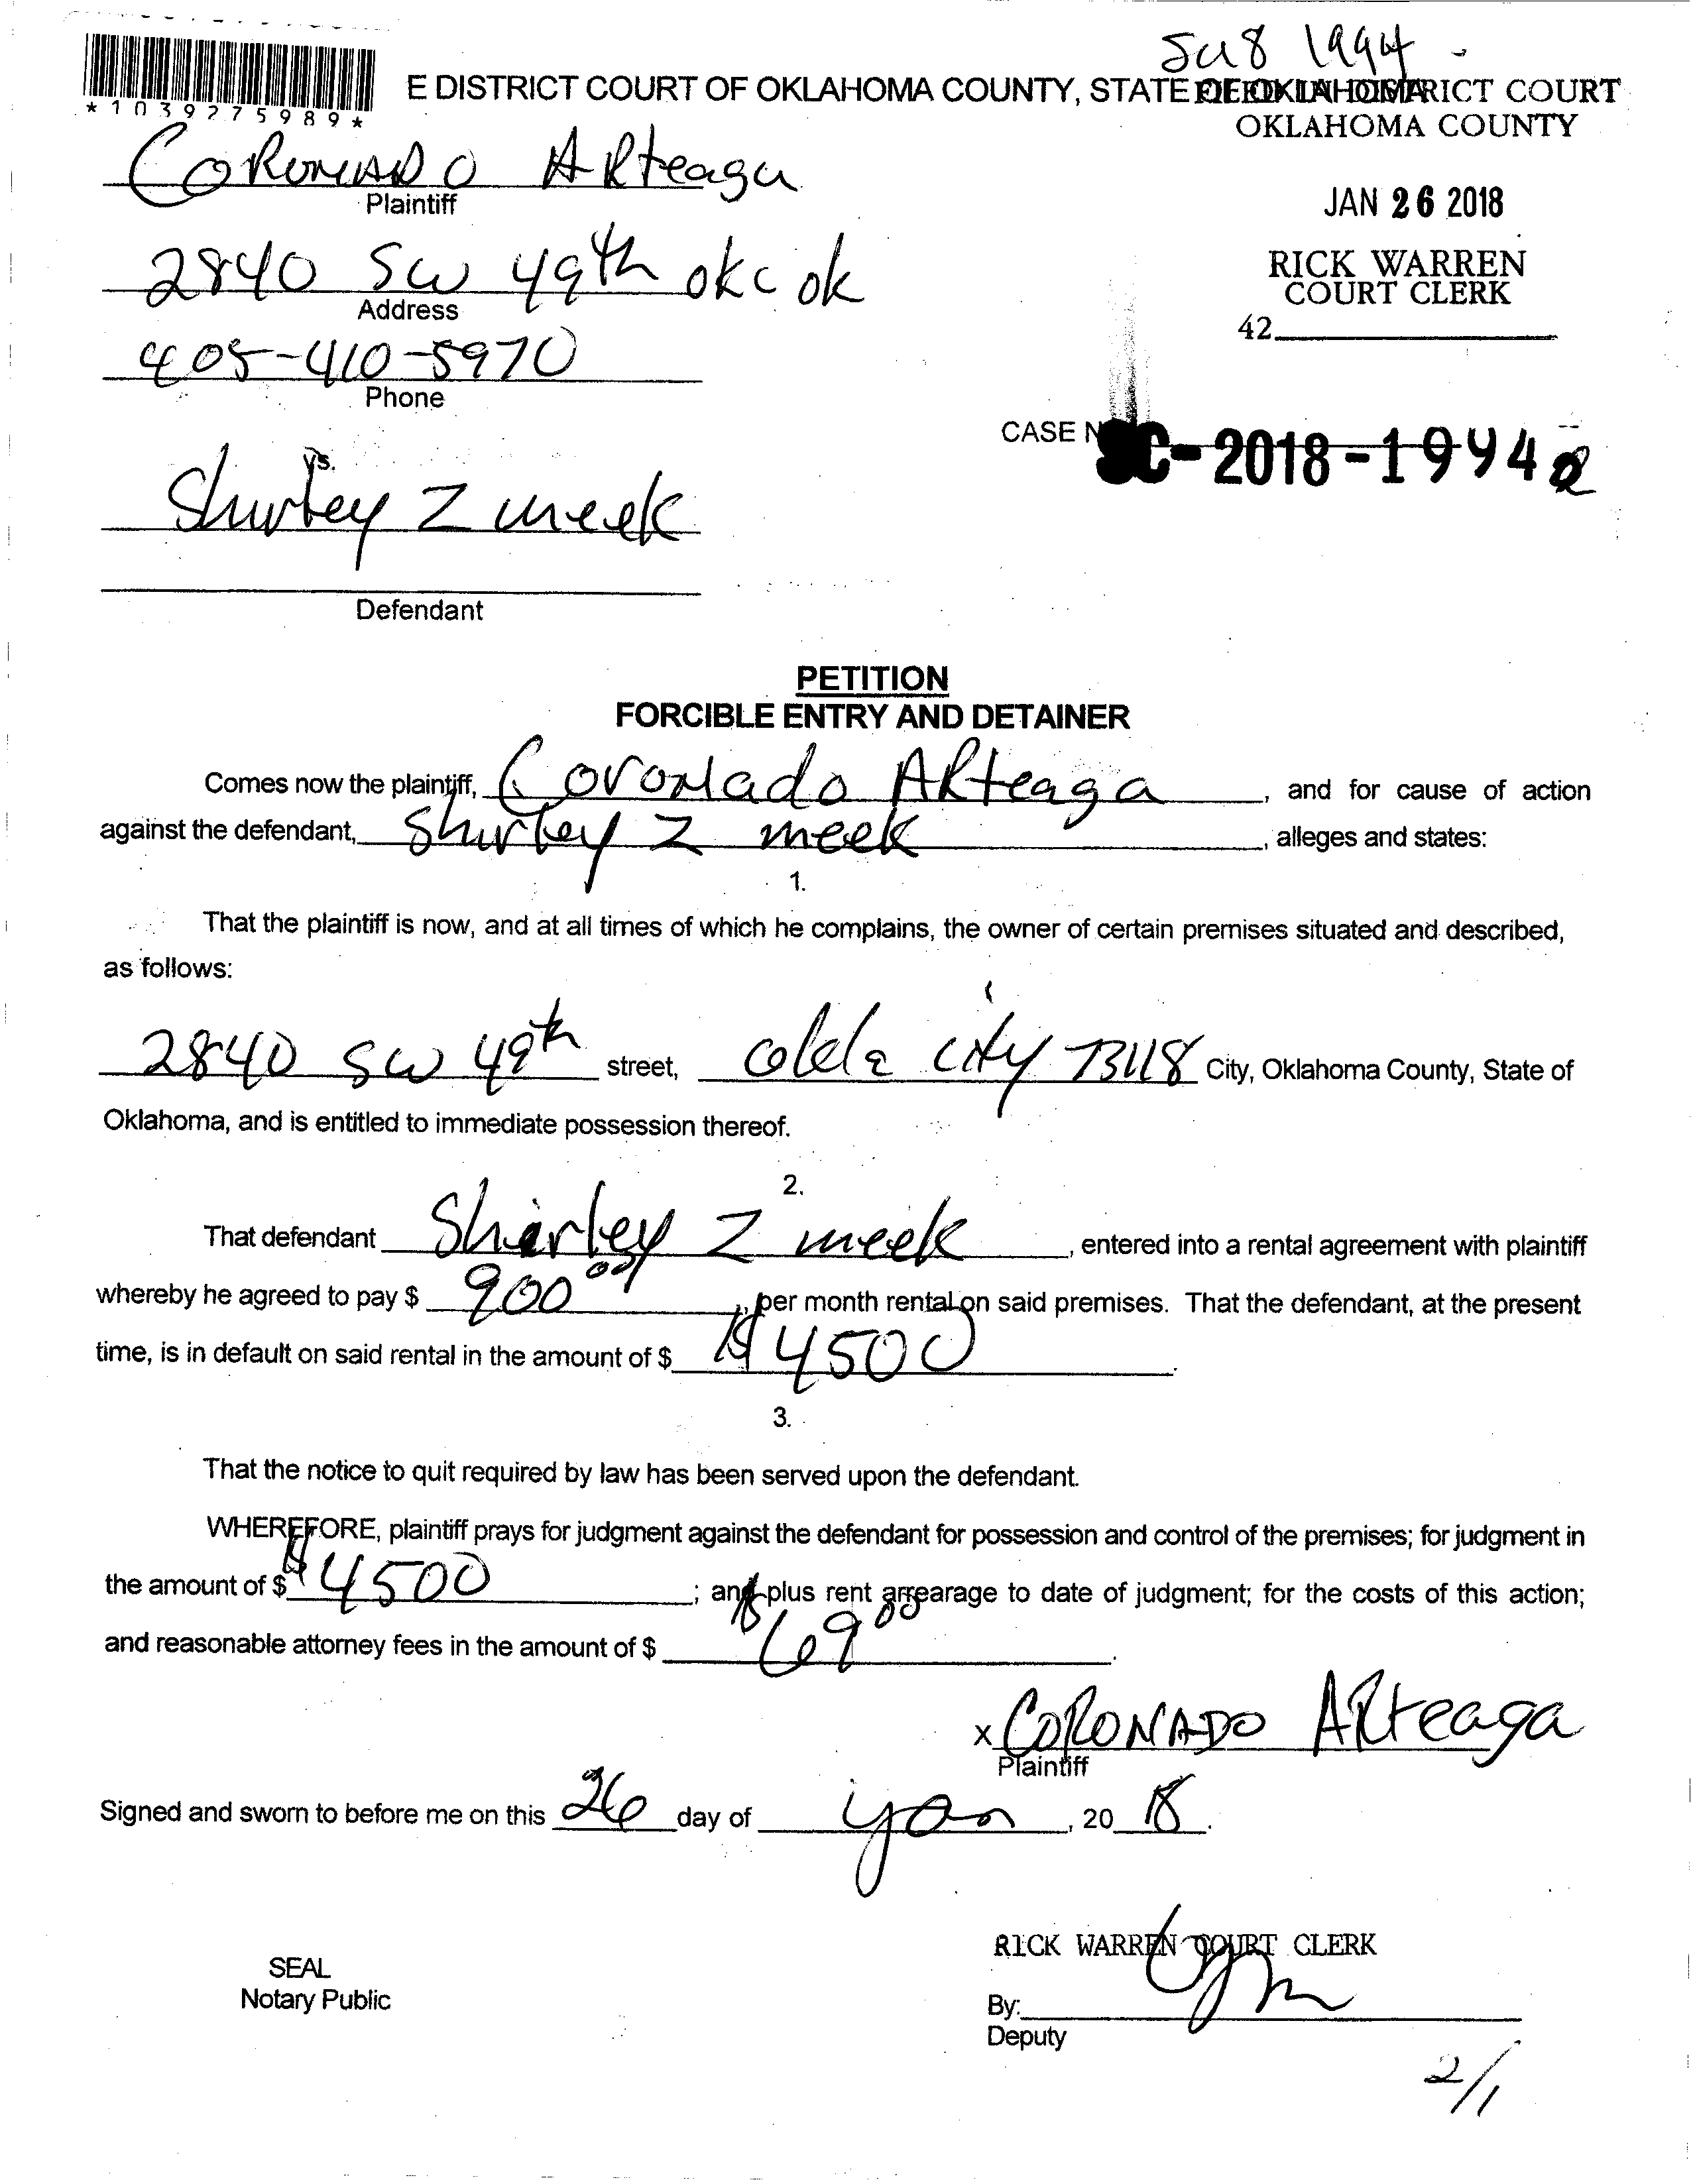 Su8 1994 -
E DISTRICT COURT OF OKLAHOMA COUNTY, STATE OF OKLAHOMA
DISTRICT COURT
OKLAHOMA COUNTY
*1039275989*
CORONADO ARteaga
Plaintiff
JAN 26 2018
2840 SW 49th okc ok
Address
RICK WARREN
COURT CLERK
42
405-410-5970
Phone
CASE N SC-2018-1994
vs.
Shirley Z meek
Defendant
PETITION
FORCIBLE ENTRY AND DETAINER
Comes now the plaintiff, Coronado ARteaga, and for cause of action
against the defendant, Shirley Z meek, alleges and states:
1.
That the plaintiff is now, and at all times of which he complains, the owner of certain premises situated and described,
as follows:
2840 SW 49th street, city 73118 City, Oklahoma County, State of
Oklahoma, and is entitled to immediate possession thereof.
2.
That defendant Shirley Z meek, entered into a rental agreement with plaintiff
whereby he agreed to pay $ 900 00, per month rental on said premises. That the defendant, at the present
time, is in default on said rental in the amount of $ $4500.
3.
That the notice to quit required by law has been served upon the defendant.
WHEREFORE, plaintiff prays for judgment against the defendant for possession and control of the premises; for judgment in
the amount of $ $4500; and plus rent arrearage to date of judgment; for the costs of this action;
and reasonable attorney fees in the amount of $ $69 00.
x CORONADO ARteaga
Plaintiff
Signed and sworn to before me on this 26 day of Jan, 20 18.
RICK WARREN COURT CLERK
SEAL
Notary Public
By:
Deputy
2/1